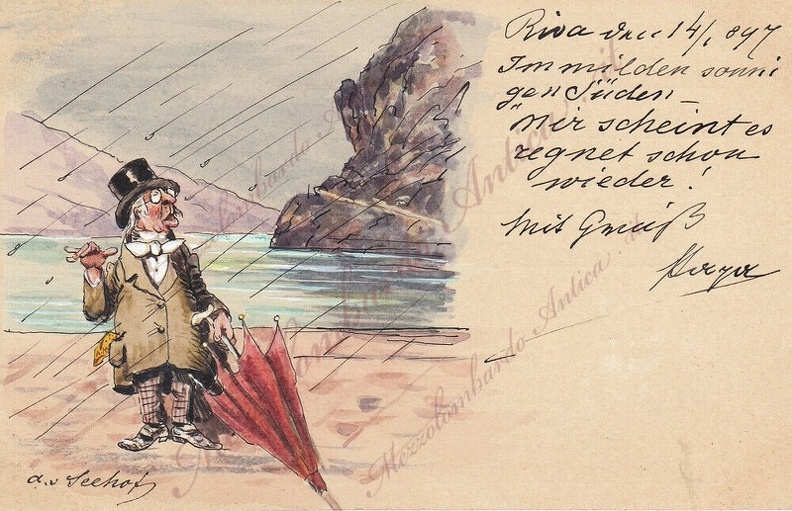 Riva den 14/1 897
Im milden sonni
gen Süden –
"Mir scheint es
regnet schon
wieder!
Mit Gruß
a. v Seehof
Mezzolombardo Antica.it